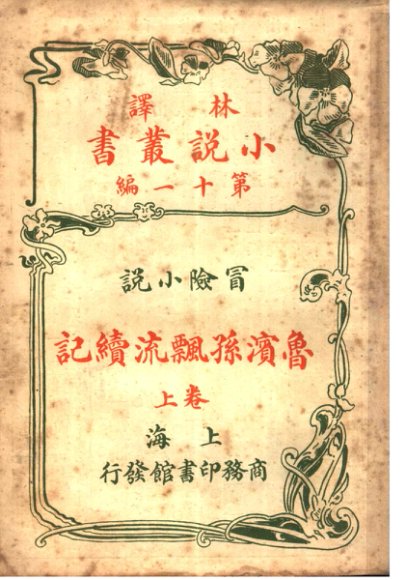 林譯
小說叢書
第十一編
冒險小說
魯濱孫飄流續記
卷上
上海
商務印書館發行